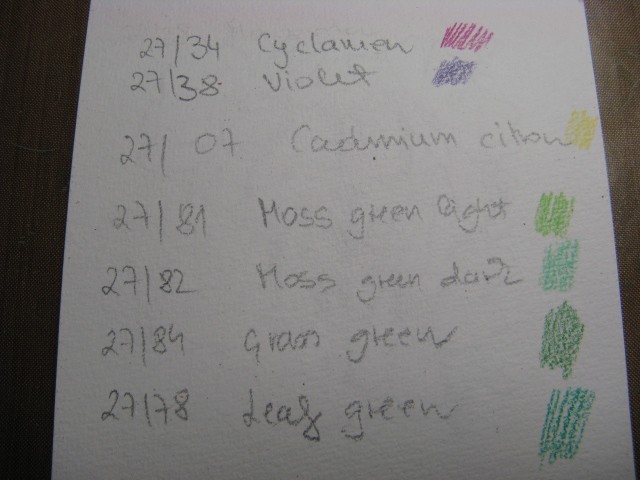 27/34 Cyclamen
27/38 Violet
27/ 07 Cadmium citron
27/81 Moss green light
27/82 Moss green dark
27/84 Grass green
27/78 Leaf green